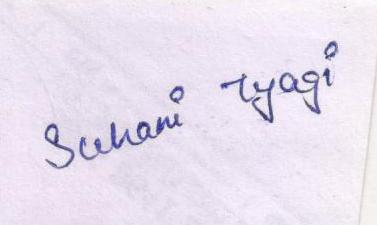 Suhani Tyagi